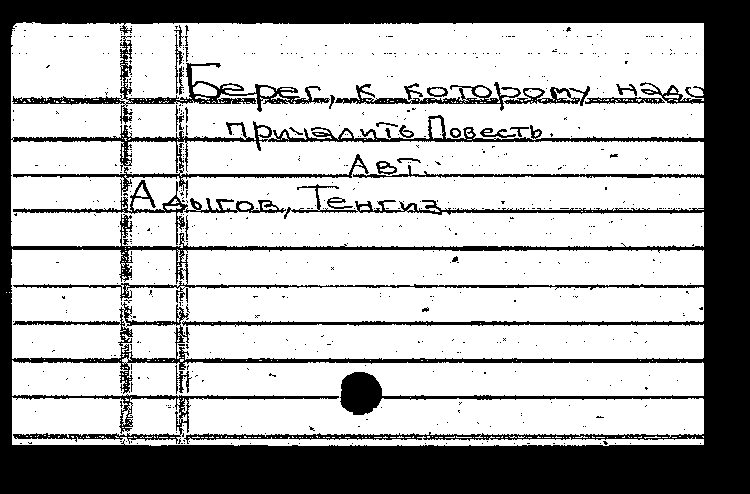 Берег, к которому надо
причалить Повесть.
Авт.
Адыгов, Тенгиз